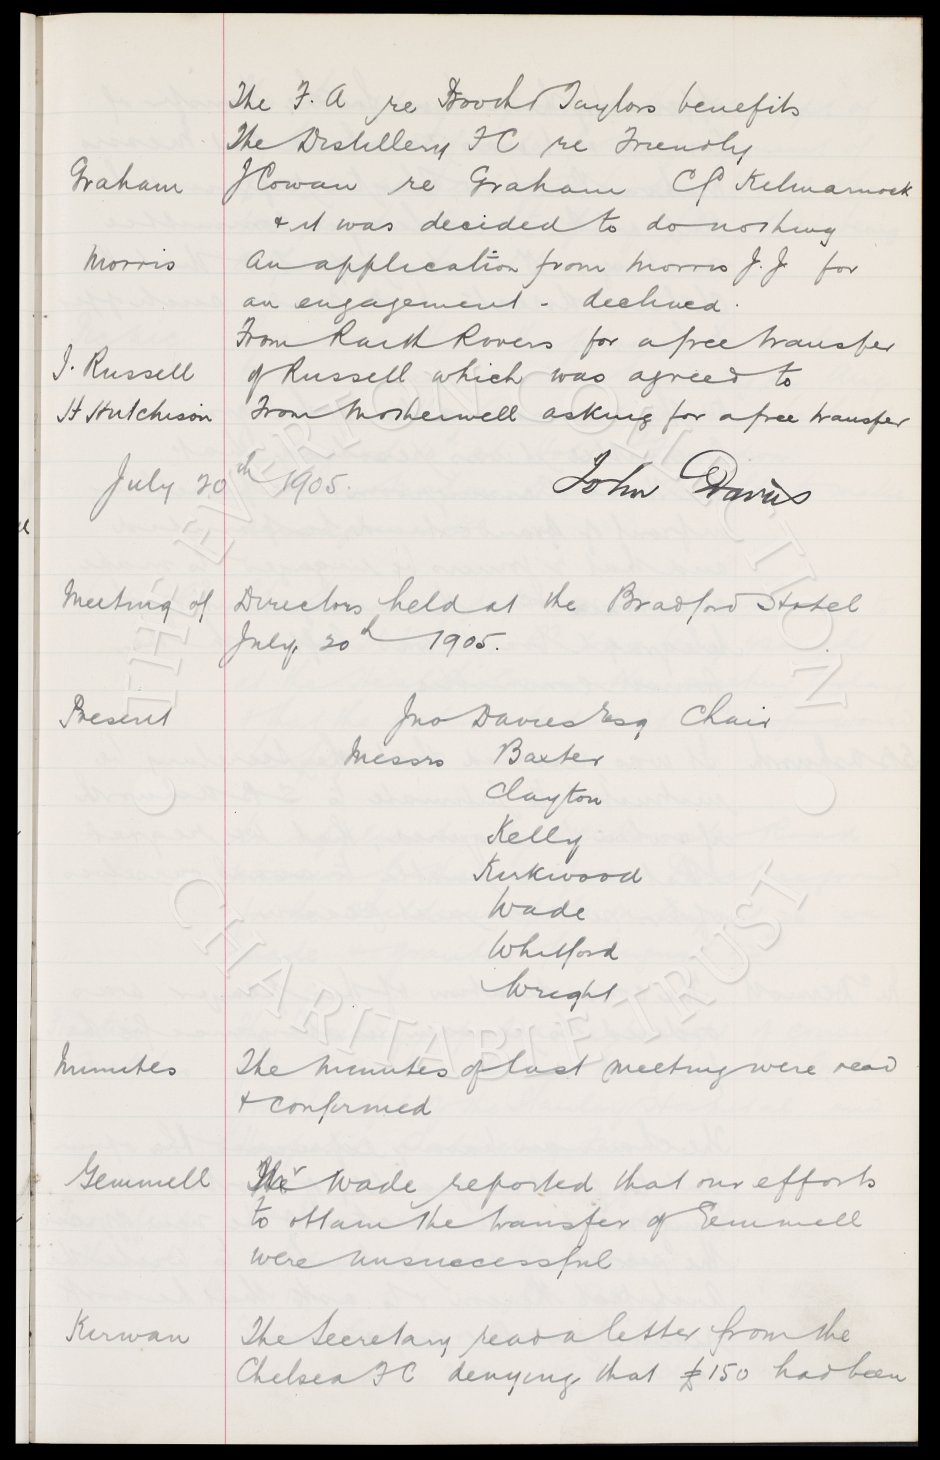 The F. A re Booth & Taylors benefits
The Distillery F C re Friendly
Graham J Cowan re Graham C/o Kilmarnock
& it was decided to do nothing
Morris An application from Morris J. J for
an engagement - declined.
From Raith Rovers for a free transfer
J. Russell of Russell which was agreed to
H Hutchison From Motherwell asking for a free transfer
July 20th 1905. John Davies
Meeting of Directors held at the Bradford Hotel
July 20th 1905.
Present Jno Davies Esq Chair
Messrs Baxter
Clayton
Kelly
Kirkwood
Wade
Whitford
Wright
Minutes The Minutes of last meeting were read
& confirmed
Gemmell Mr Wade reported that our efforts
to obtain the transfer of Gemmell
were unsuccessful
Kirwan The Secretary read a letter from the
Chelsea F C denying that £150 had been
THE EVERTON COLLECTION
CHARITABLE TRUST